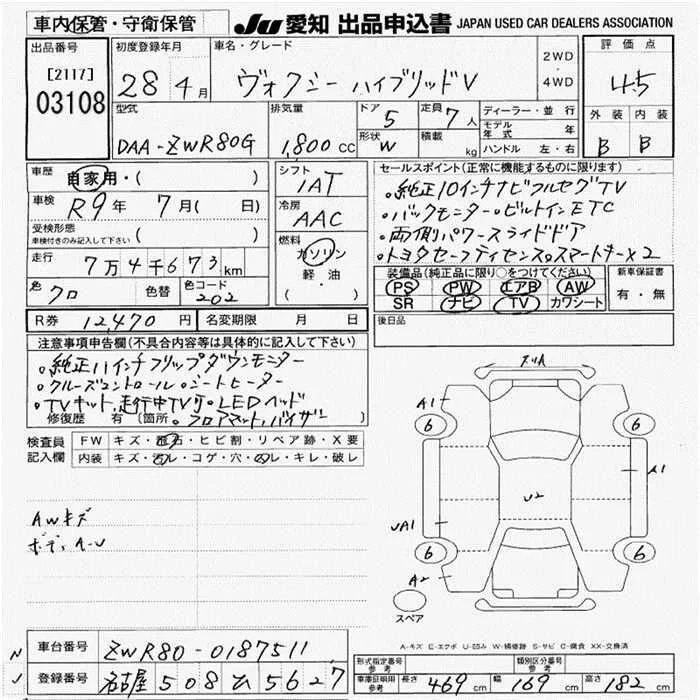 車内保管・守衛保管
JU 愛知 出品申込書 JAPAN USED CAR DEALERS ASSOCIATION
出品番号
[2117]
03108
初度登録年月
28 4月
車名・グレード
ヴォクシー ハイブリッドV
2WD
・
4WD
評価点
4.5
型式
DAA-ZWR80G
排気量
1,800 cc
ドア
5
形状
W
定員
7人
積載
kg
ディーラー・並行
モデル年式 年
ハンドル 左・右
外装 内装
B B
車歴
自家用・( )
車検
R9年 7月( 日)
受検形態
車検付きのみ記入して下さい ( )
走行
7万4千673km
色
クロ
色替
色コード
202
シフト
IAT
冷房
AAC
燃料
ガソリン
軽・油
( )
セールスポイント(正常に機能するものに限ります)
・純正10インチナビフルセグTV
・バックモニター・ビルトインETC
・両側パワースライドドア
・トヨタセーフティセンス・スマートキーX2
装備品(純正品に限り○をつけてください)
PS PW エアB AW
SR ナビ TV カワシート
新車保証書
有・無
R券 12,470円
名変期限 月 日
後日品
注意事項申告欄(不具合内容等は具体的に記入して下さい)
・純正11インチフリップダウンモニター
・クルーズコントロール・シートヒーター
・TVキット,走行中TV可・LEDヘッド
修復歴 有 (箇所 ・フロアマット,バイザー)
検査員
記入欄
FW キズ・飛石・ヒビ割・リペア跡・X要
内装 キズ・汚レ・コゲ・穴・スレ・キレ・破レ
AWキズ
ボディA-U
ズリA
A1
6
6
A1
U2
UA1
6
6
A2
スペア
A-キズ E-エクボ U-凹み W-補修跡 S-サビ C-腐食 XX-交換済
N
J
車台番号 ZWR80-0187511
登録番号 名古屋 508 ム 5627
形式指定番号
参考
類別区分番号
参考
車庫証明用
参考
長さ 469cm 幅 169cm 高さ 182cm